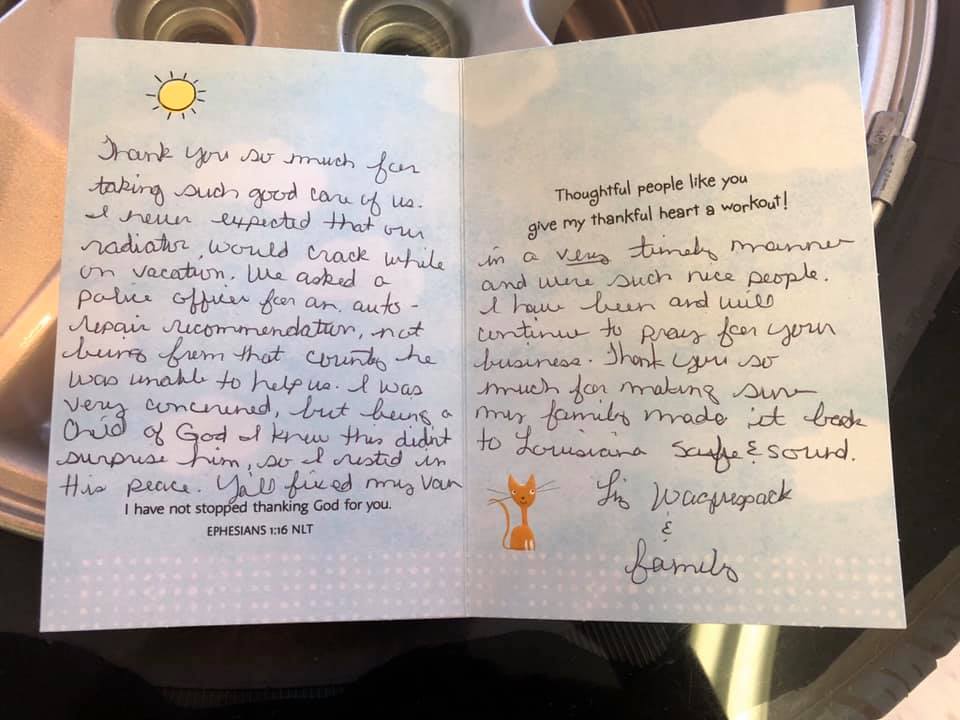 Thank you so much for
taking such good care of us.
I never expected that our
radiator would crack while
on vacation. We asked a
police officer for an auto-
repair recommendation, not
being from that county he
was unable to help us. I was
very concerned, but being a
Child of God I knew this didn't
surprise him, so I rested in
His peace. Ya'll fixed my van
I have not stopped thanking God for you.
EPHESIANS 1:16 NLT
Thoughtful people like you
give my thankful heart a workout!
in a very timely manner
and were such nice people.
I have been and will
continue to pray for your
business. Thank you so
much for making sure
my family made it back
to Louisiana safe & sound.
Liz Waguespack
&
family